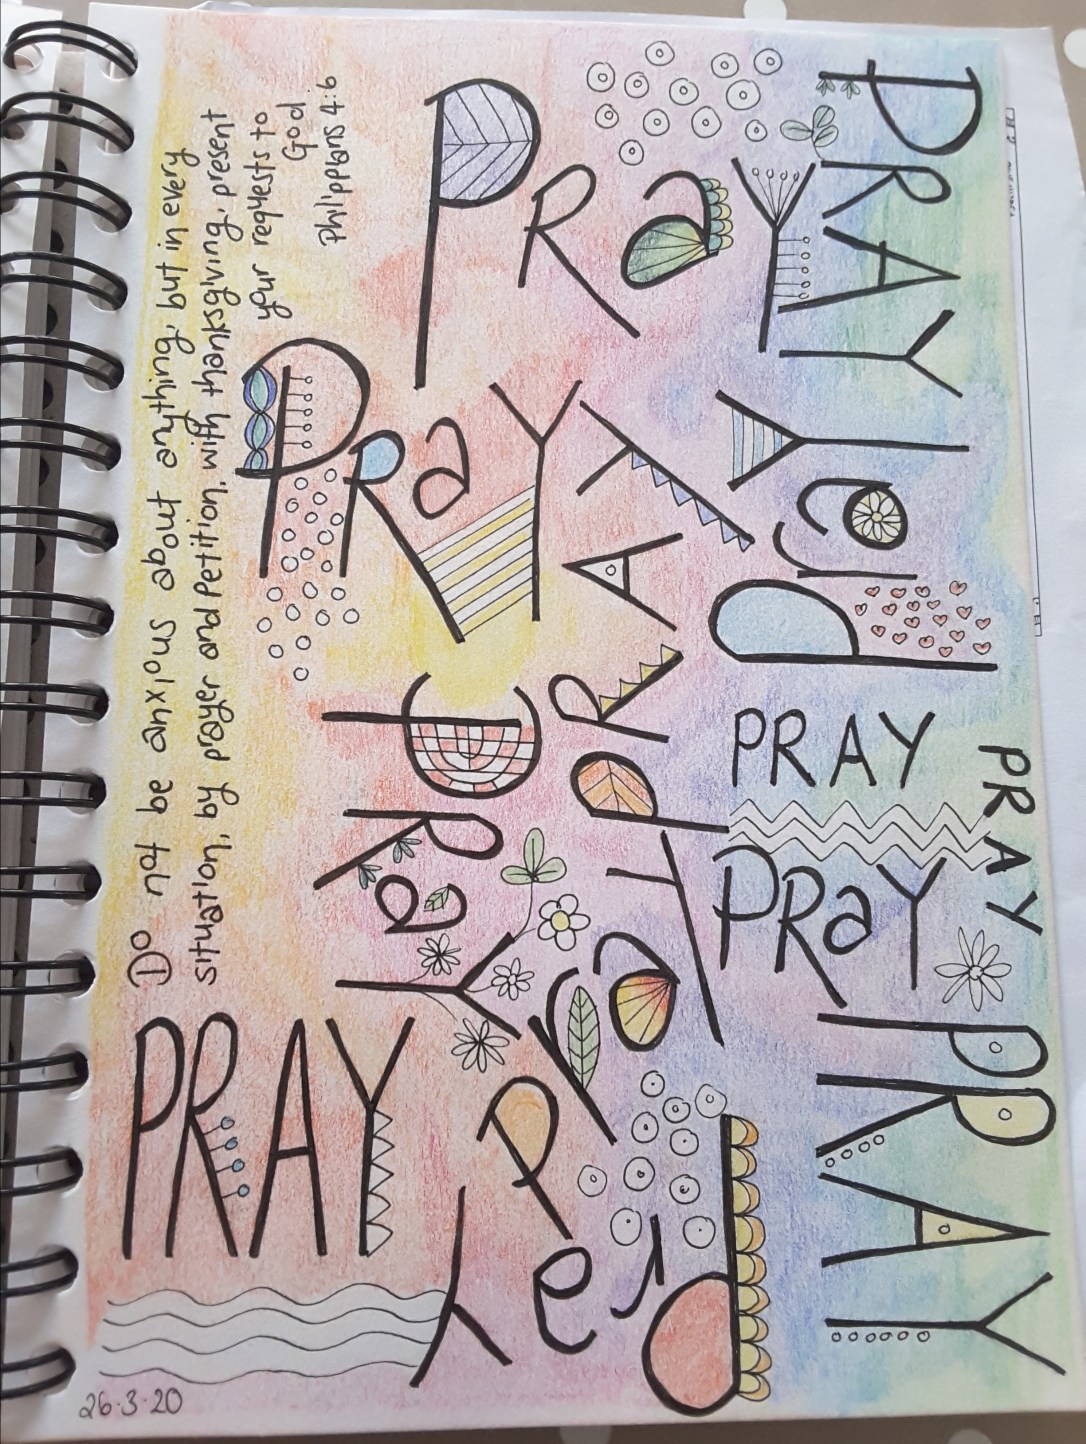 Do not be anxious about anything, but in every
situation, by prayer and Petition, with thanksgiving, present
your requests to
God
Philippians 4:6
PRaY
PRaY
PRAY
PRAY
PraY
PRAY
PRAY
PRaY
PRAY
PRaY
PRaY
PraY
PRAY
26.3.20